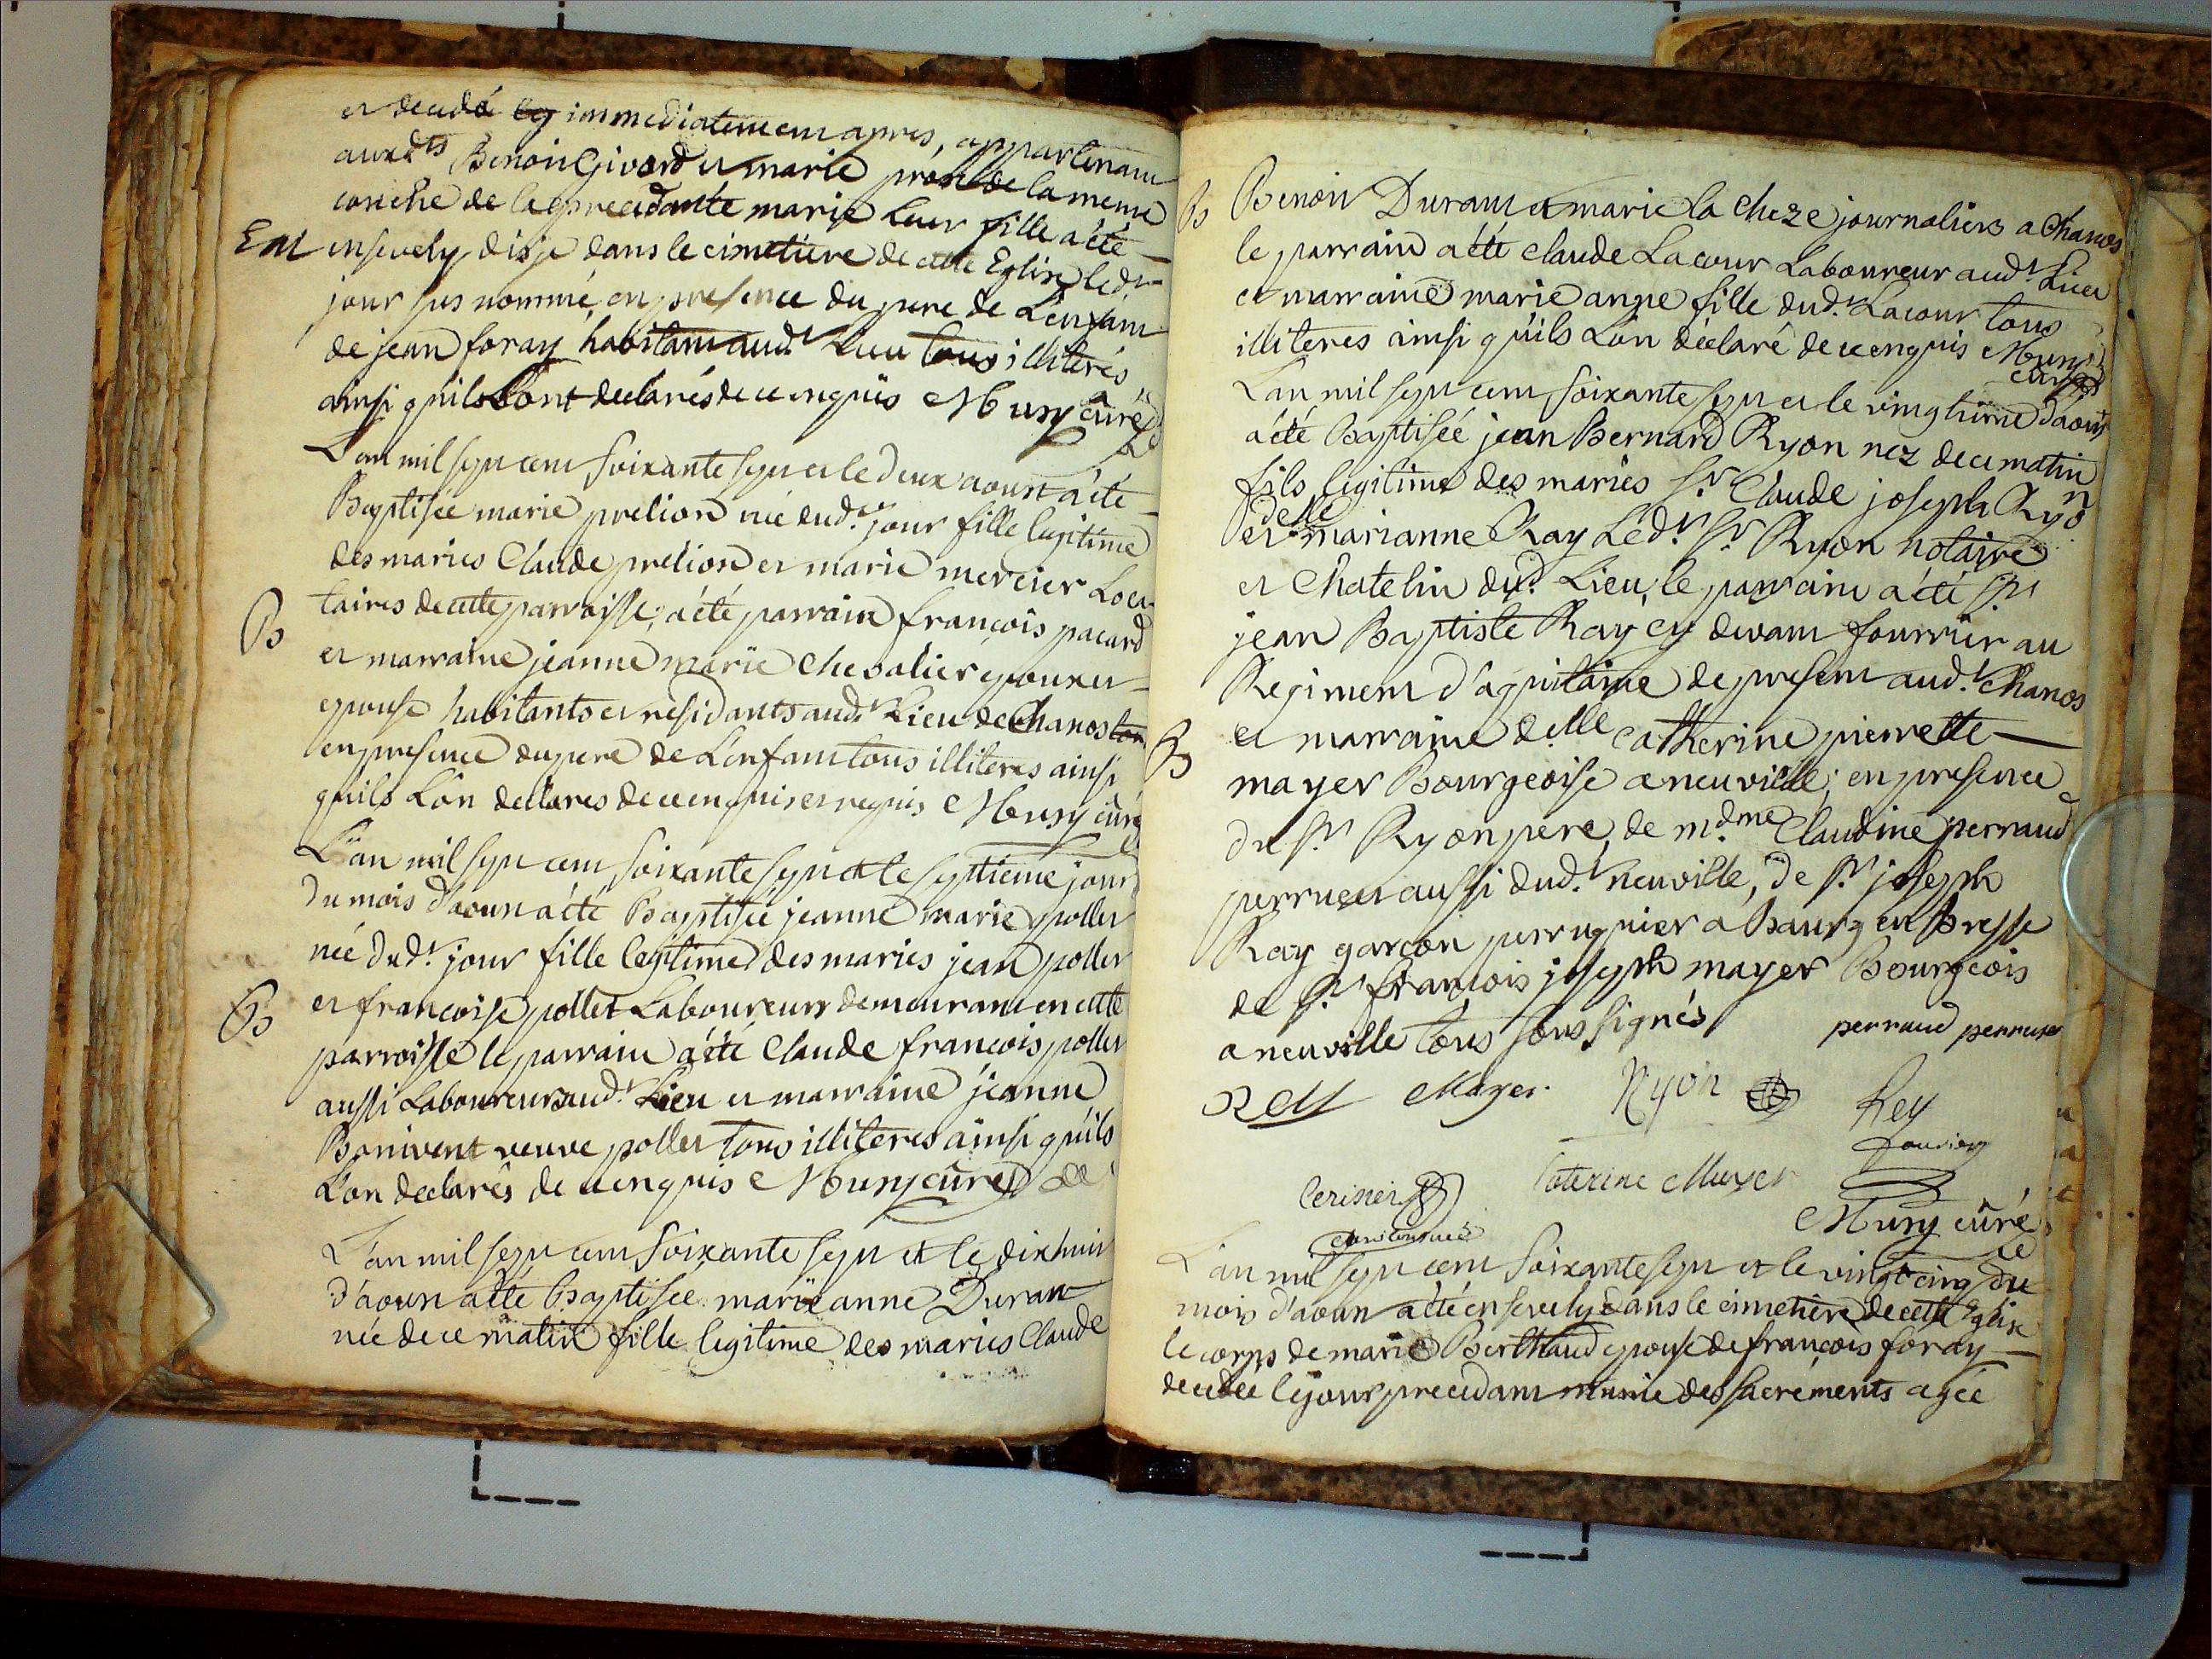 et decedé immediatement apres, appartenant
auxdts Benoit Givord et marie de la meme
couche de la precedante marie leur fille a été
Em ensevely disje dans le cimetiere de cette Eglise led.t
jour sus nommé, en presence du pere de L'enfant
de jean foray habitant aud.t Lieu tous illiterés
ainsi quils Lont declarés de ce enquis Musy curé
L'an mil sept cent soixante sept et le deux aoust a été
Baptisée marie prelion née dud.t jour fille legitime
des mariés Claude prelion et marie mercier Loca
B taires de cette parroisse, a été parrain françois pacard
et marraine jeanne marie Chevalier epoux et
epouse habitants et residants aud.t Lieu de Chanos
en presence du pere de L'enfant tous illiteres ainsi
quils L'on declarés de ce enquis et requis Musy curé
L'an mil sept cent soixante sept et le septieme jour
du mois d'aoust a été Baptisée jeanne marie pollet
née dud.t jour fille legitime des mariés jean pollet
B et francoise pollet Laboureurs demeurant en cette
parroisse le parrain a été Claude francois pollet
aussi Laboureur aud.t Lieu et marraine jeanne
Bonivent veuve pollet tous illiteres ainsi quils
L'on declarés de ce enquis Musy curé
L'an mil sept cent soixante sept et le dix huit
d'aoust a été Baptisée marie anne Durant
née de ce matin fille legitime des mariés Claude
B Benoit Durant et marie la Cheze journaliers a Chanos
le parrain a été claude Lacour Laboureur aud.t Lieu
et marraine marie anne fille dud.t Lacour tous
illiteres ainsi qu'ils L'on declaré de ce enquis Musy
curé
L'an mil sept cent soixante sept et le vingtieme d'aoust
a été Baptisée jean Bernard Ryon nez de ce matin
fils legitime des mariés S.r Claude joseph Ryon
et delle marianne Ray Led.t S.r Ryon notaire
et Chatelin dud.t Lieu, le parrain a été S.r
jean Baptiste Ray cy devant fourrier au
Regiment d'aquitaine de present aud.t Chanos
B et marraine delle catherine pierrette
mayer Bourgeoise a neuville; en presence
du S.r Ryon pere, de md.me Claudine perraud
perruset aussi dud.t neuville, de S.r joseph
Ray garcon perruquier a Bourg en Bresse
de S.r francois joseph mayer Bourgeois
a neuville tous sous signés perraud perruset
Rey Mayer Ryon Rey
fourier
Cerisier Caterine Mayer
Musy curé
L'an mil sept cent soixante sept et le vingt cinq du
mois d'aoust a été ensevely dans le cimetiere de cette Eglise
le corps de marie Berthaud epouse de francois foray
decedée le jour precedant munie des sacrements agée